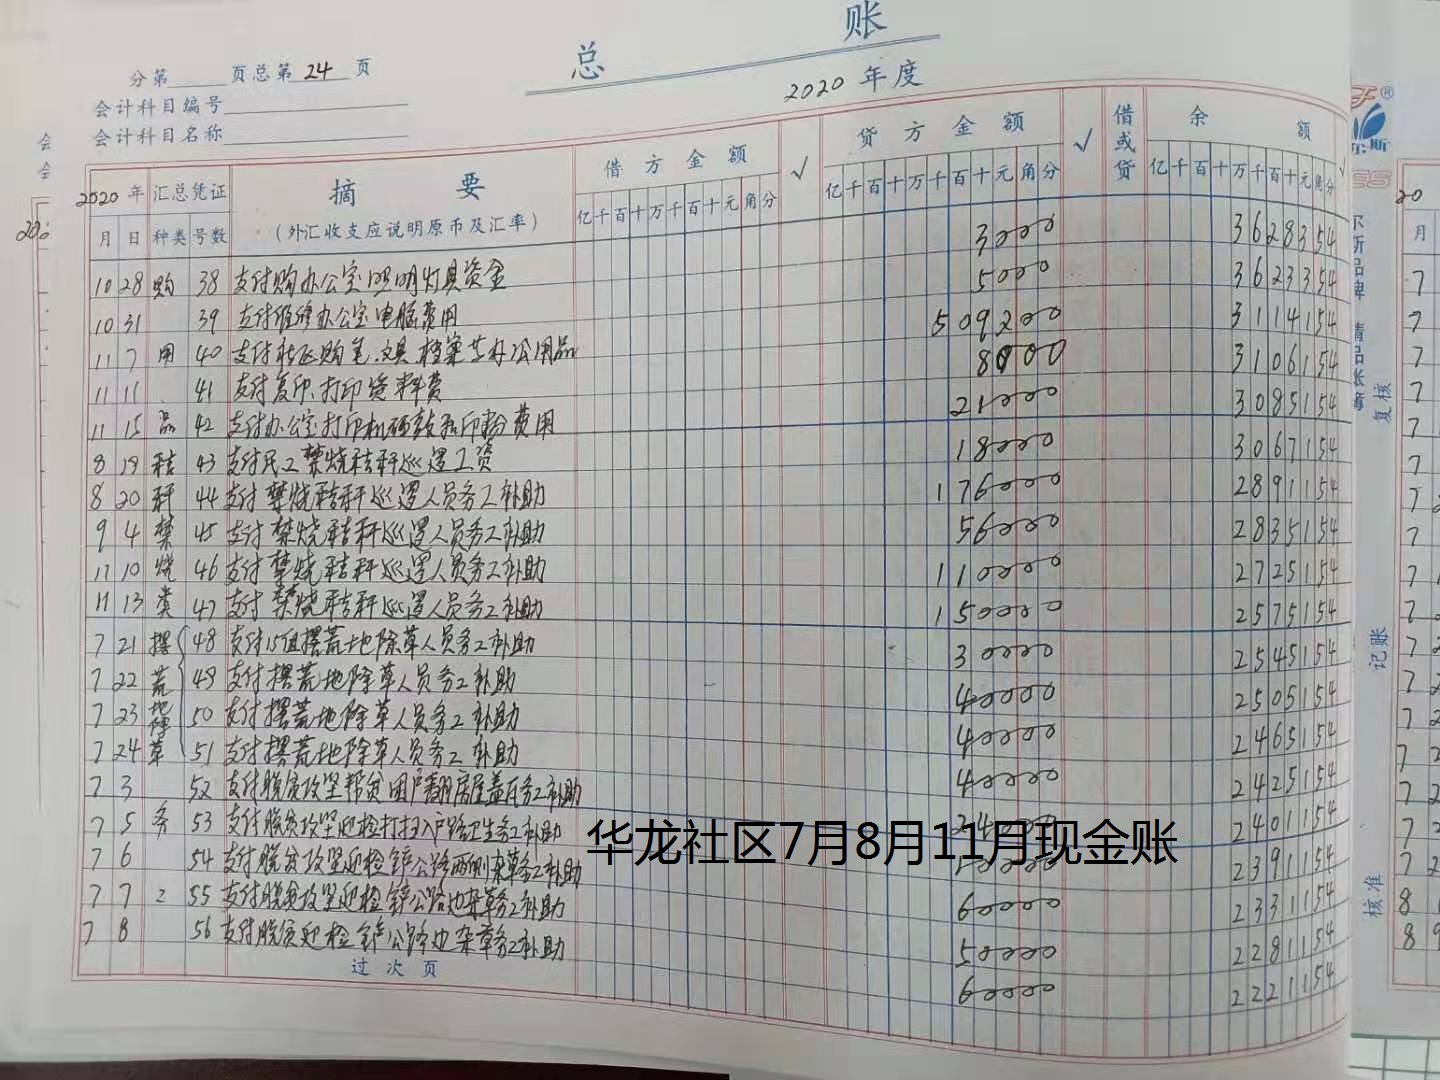 总 账
2020 年度
分第 页总第 24 页
会计科目编号
会计科目名称
2020 年 汇总凭证 摘 要 借方金额 √ 贷方金额 √ 借或贷 余 额 √
月 日 种类 号数 (外汇收支应说明原币及汇率) 亿千百十万千百十元角分 亿千百十万千百十元角分 亿千百十万千百十元角分
10 28 购 38 支付购办公室照明灯具资金 3000 3628354
10 31 39 支付维修办公室电脑费用 5000 3623354
11 7 用 40 支付社区购笔.文具.档案盒办公用品 509200 3114154
11 11 41 支付复印.打印资料费 8000 3106154
11 15 品 42 支付办公室打印机硒鼓和印粉费用 21000 3085154
8 19 秸 43 支付民工禁烧秸秆巡逻工资 18000 3067154
8 20 秆 44 支付禁烧秸秆巡逻人员务工补助 176000 2891154
9 4 禁 45 支付禁烧秸秆巡逻人员务工补助 56000 2835154
11 10 烧 46 支付禁烧秸秆巡逻人员务工补助 110000 2725154
11 13 类 47 支付禁烧秸秆巡逻人员务工补助 150000 2575154
7 21 摆 48 支付15组摆荒地除草人员务工补助 30000 2545154
7 22 荒 49 支付摆荒地除草人员务工补助 40000 2505154
7 23 地除 50 支付摆荒地除草人员务工补助 40000 2465154
7 24 草 51 支付摆荒地除草人员务工补助 40000 2425154
7 3 52 支付脱贫攻坚帮贫困户翻房屋盖瓦务工补助 24000 2401154
7 5 务 53 支付脱贫攻坚迎检打扫入户路卫生务工补助 10000 2391154
7 6 54 支付脱贫攻坚迎检铲公路两侧杂草务工补助 60000 2331154
7 7 工 55 支付脱贫攻坚迎检铲公路边杂草务工补助 50000 2281154
7 8 56 支付脱贫迎检铲公路边杂草务工补助 60000 2221154
过次页
华龙社区7月8月11月现金账
复核
记账
核准